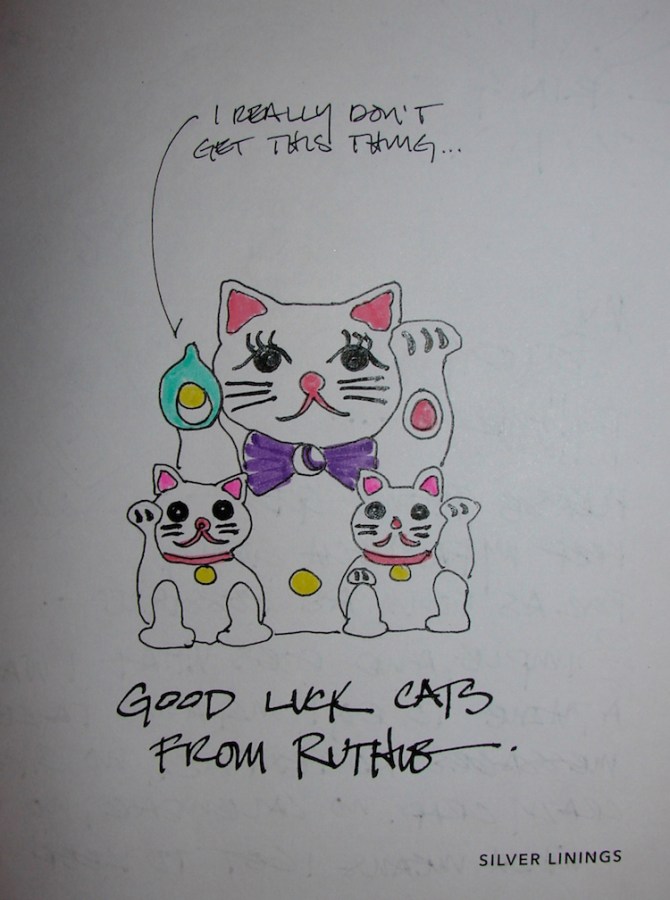 I REALLY DON'T
GET THIS THING...
GOOD LUCK CATS
FROM RUTHIE.
SILVER LININGS